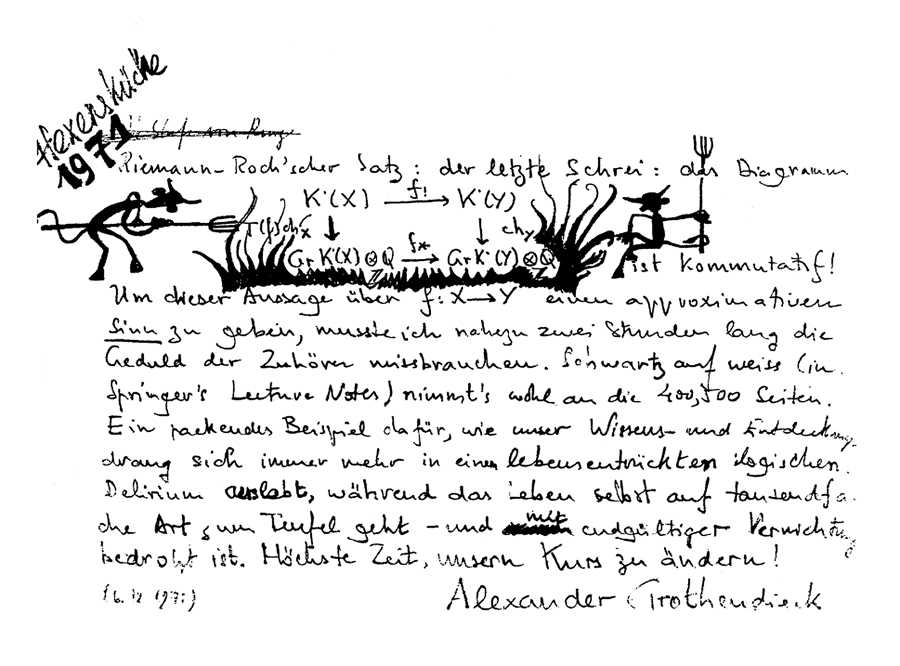 Hexenküche
1971
Riemann-Roch'scher Satz: der letzte Schrei: das Diagramm
K˙(X) f! → K˙(Y)
↓ ↓ ch_Y
Gr K˙(X) ⊗ Q f* → Gr K˙(Y) ⊗ Q
Z Z
ist kommutatif!
Um dieser Aussage über f: X → Y einen approximativen
Sinn zu geben, musste ich nahezu zwei Stunden lang die
Geduld der Zuhörer missbrauchen. Schwartz auf weiss (in
Springer's Lecture Notes) nimmt's wohl an die 400, 500 Seiten.
Ein packendes Beispiel dafür, wie unser Wissens- und Entdeckungs-
drang sich immer mehr in einem lebensentrückten logischen
Delirium auslebt, während das Leben selbst auf tausendfa-
che Art zum Teufel geht - und mit endgültiger Vernichtung
bedroht ist. Höchste Zeit, unsern Kurs zu ändern!
Alexander Grothendieck